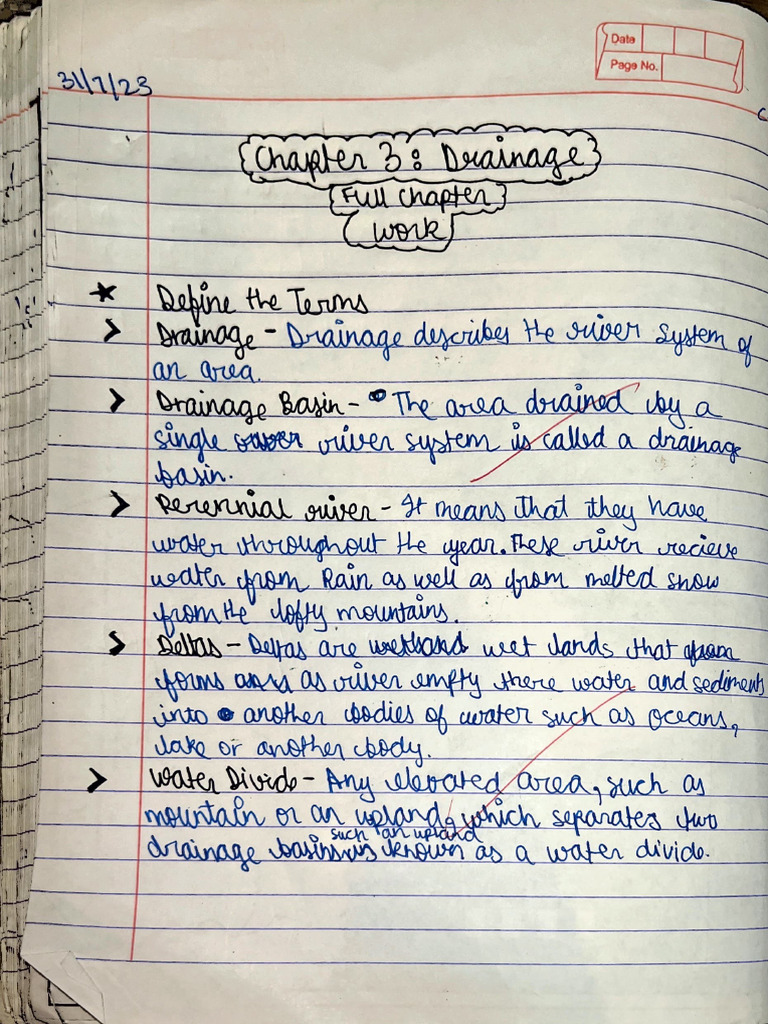 Date
Page No.
31/7/23
Chapter 3: Drainage
Full Chapter
Work
* Define the Terms
> Drainage - Drainage describes the river system of
an area.
> Drainage Basin - The area drained by a
single river system is called a drainage
basin.
> Perennial river - It means that they have
water throughout the year. These river recieve
water from Rain as well as from melted snow
from the lofty mountains.
> Deltas - Deltas are wet lands that
forms as river empty there water and sediments
into another bodies of water such as oceans,
lake or another body.
> Water Divide - Any elevated area, such as
mountain or an upland, which separates two
such an upland
drainage basins is known as a water divide.